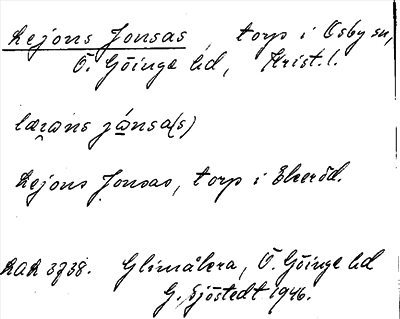 Lejons Jonsas, torp i Osby sn,
Ö. Göinge hd, Krist. l.
Lejons Jonsas, torp i Ekeröd.
Glimåkra, Ö. Göinge hd
G. Sjöstedt 1946.